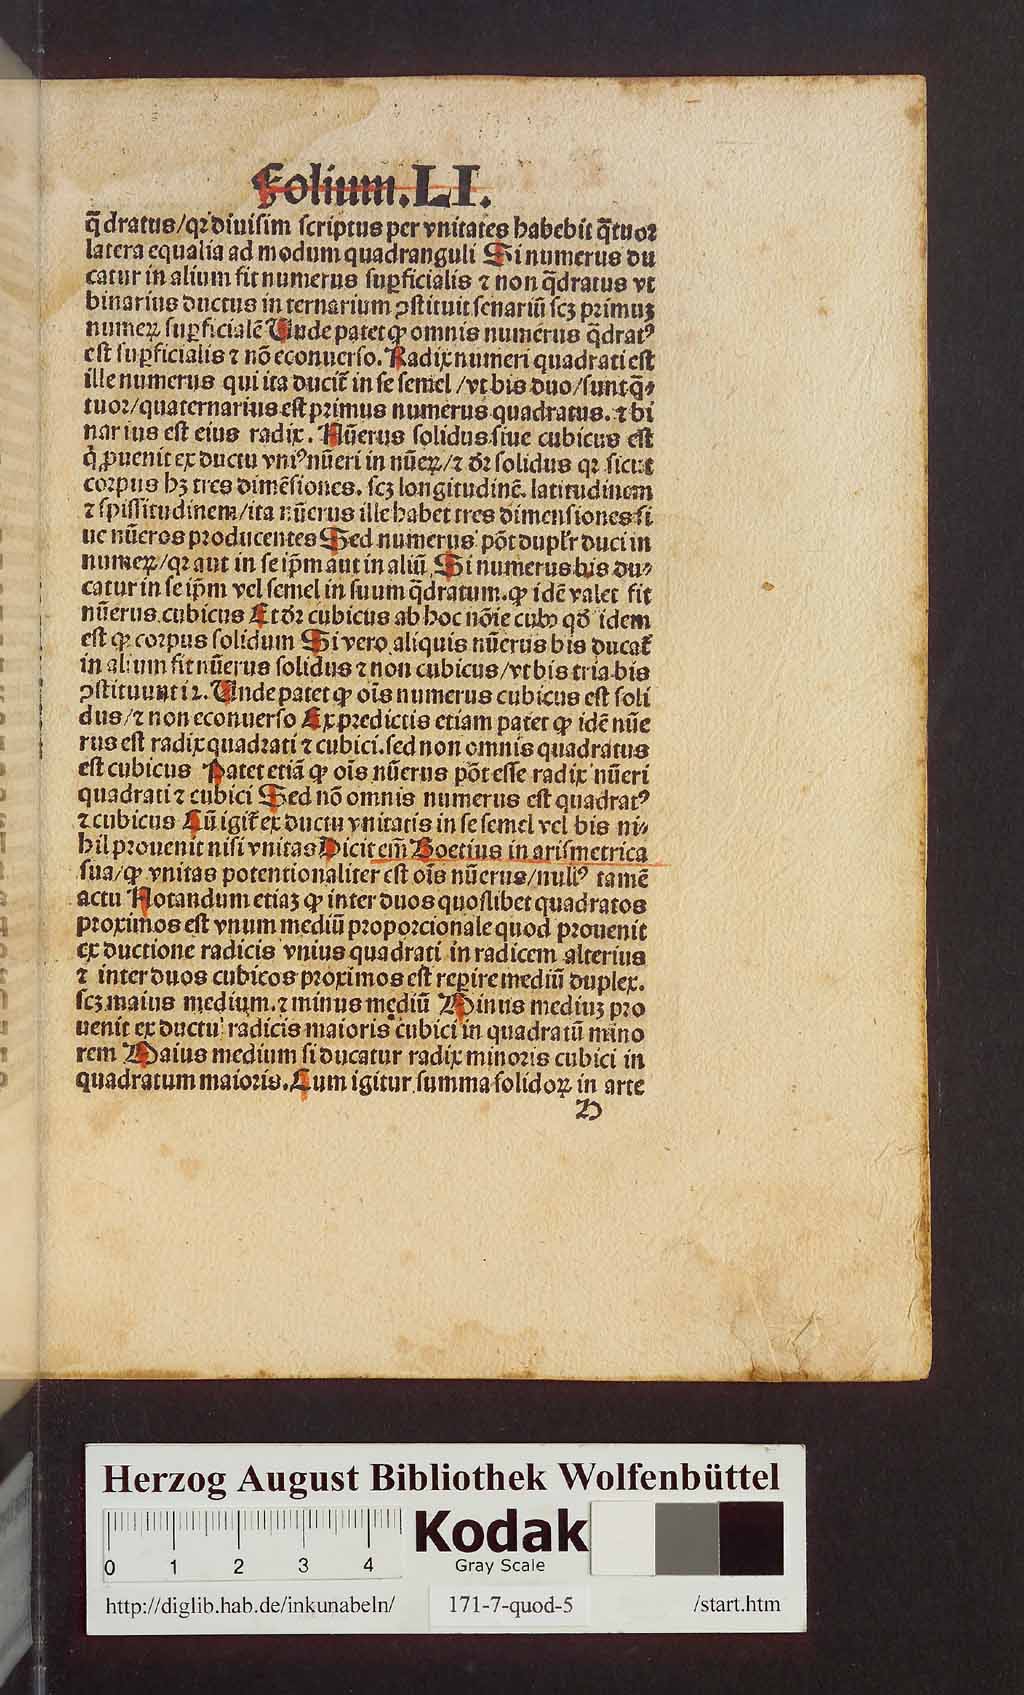 Folium.LI.
q̄dratus/qꝛ diuisim scriptus per vnitates habebit q̄tuoꝛ
latera equalia ad modum quadranguli Si numerus du
catur in alium fit numerus suꝑficialis ⁊ non q̄dratus vt
binarius ductus in ternarium ꝯstituit senariū scꝫ pꝛimuꝫ
numeꝝ suꝑficialē Vnde patet ꝙ omnis numerus q̄dratꝰ
est suꝑficialis ⁊ nō econuerso. Radix numeri quadrati est
ille numerus qui ita ducit̄ in se semel/vt bis duo/sunt q̄⸗
tuoꝛ/quaternarius est pꝛimus numerus quadratus. ⁊ bi
narius est eius radix. Nūerus solidus siue cubicus est
q̇ ꝓuenit ex ductu vniꝰ nūeri in nūeꝝ/⁊ dꝛ̄ solidus qꝛ sicut
coꝛpus hꝫ tres dimēsiones. scꝫ longitudinē. latitudinem
⁊ spissitudinem/ita nūerus ille habet tres dimensiones si
ue nūeros pꝛoducentes Sed numerus pōt duplr̄ duci in
numeꝝ/qꝛ aut in se ip̄m aut in aliū. Si numerus bis du⸗
catur in se ip̄m vel semel in suum q̄dratum. ꝙ idē valet fit
nūerus cubicus Et dꝛ̄ cubicus ab hoc nōie cubꝰ qd̄ idem
est ꝙ coꝛpus solidum Si vero aliquis nūerus bis ducat̄
in alium fit nūerus solidus ⁊ non cubicus/vt bis tria bis
ꝯstituunt 12. Vnde patet ꝙ oīs numerus cubicus est soli
dus/⁊ non econuerso Ex pꝛedictis etiam patet ꝙ idē nūe
rus est radix quadrati ⁊ cubici. sed non omnis quadratus
est cubicus Patet etiā ꝙ oīs nūerus pōt esse radix nūeri
quadrati ⁊ cubici Sed nō omnis numerus est quadratꝰ
⁊ cubicus Cū igit̄ ex ductu vnitatis in se semel vel bis ni⸗
hil pꝛouenit nisi vnitas Dicit em̄ Boetius in arismetrica
sua/ꝙ vnitas potentionaliter est oīs nūerus/nullꝰ tamē
actu Notandum etiaꝫ ꝙ inter duos quoslibet quadratos
pꝛoximos est vnum mediū pꝛopoꝛcionale quod pꝛouenit
ex ductione radicis vnius quadrati in radicem alterius
⁊ inter duos cubicos pꝛoximos est reꝑire mediū duplex.
scꝫ maius medium. ⁊ minus mediū Minus mediuꝫ pꝛo
uenit ex ductu radicis maioris cubici in quadratū mino
rem Maius medium si ducatur radix minoꝛis cubici in
quadratum maioꝛis. Cum igitur summa solidoꝝ in arte
Herzog August Bibliothek Wolfenbüttel
0 1 2 3 4
Kodak
Gray Scale
http://diglib.hab.de/inkunabeln/ 171-7-quod-5 /start.htm